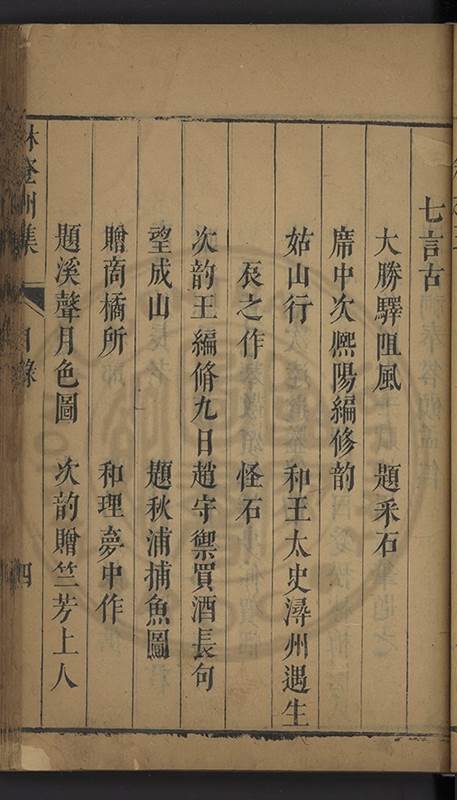 七言古
大勝驛阻風 題采石
席中次熈陽編修韵
姑山行 和王太史潯州遇生
辰之作 怪石
次韵王編脩九日趙守禦買酒長句
望成山 題秋浦捕魚圖
贈商橘所 和理夢中作
題溪聲月色圖 次韵贈竺芳上人
林登州集 目錄 四